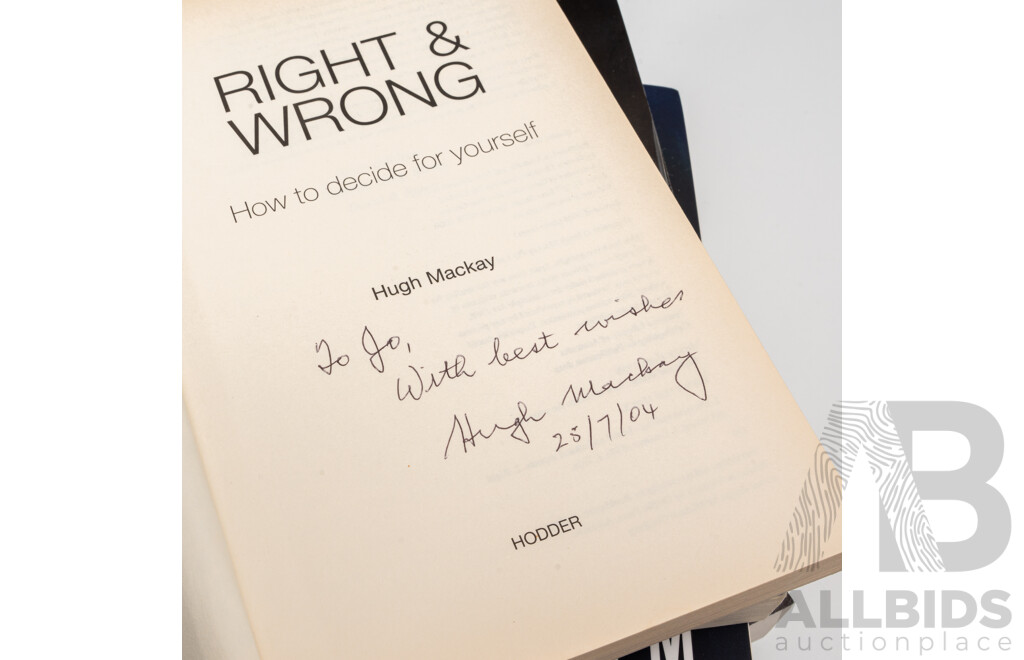 RIGHT &
WRONG
How to decide for yourself
Hugh Mackay
To Jo,
With best wishes
Hugh Mackay
28/7/04
HODDER
M
AB
ALLBIDS
auctionplace